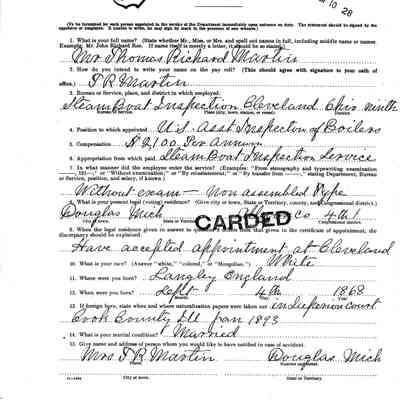 10 28
(To be furnished for each person appointed in the service of the Department immediately upon entrance on duty. The statement should be signed by the appointee or employee. If unable to write, he may sign by mark in the presence of one witness.)
1. What is your full name? (State whether Mr., Miss, or Mrs. and spell out names in full, including middle name or names.
Example: Mr. John Richard Roe. If name itself is merely a letter, it should be so stated.)
Mr Thomas Richard Martin
2. How do you intend to write your name on the pay roll? (This should agree with signature to your oath of office.)
T R Martin
3. Bureau or Service, place, and district in which employed:
SteamBoat Inspection Cleveland Ohio ninth
Bureau or Service. Place (city, town, station, or vessel) District.
4. Position to which appointed U.S. Asst Inspector of Boilers
5. Compensation $2100 Per Annum
6. Appropriation from which paid SteamBoat Inspection Service
7. In what manner did you enter the service?
Without exam - Non assembled Type
8. What is your present legal (voting) residence? (Give city or town, State or Territory, county, and Congressional district.)
Douglas Mich 4th
CARDED
9. When the legal residence given in answer to question
discrepancy should be explained.
Have accepted appointment at Cleveland
10. What is your race? (Answer "white," "colored," or "Mongolian.") White
11. Where were you born? Langley England
12. When were you born? Sept 4th 1868
Month Day Year
13. If foreign born, state when and where naturalization papers were taken out in Superior Court
Cook County Ill Jan 1893
14. What is your marital condition? Married
15. Give name and address of person whom you would like to have notified in case of accident.
Mrs T R Martin Douglas Mich
Name.
City or town. State or Territory.